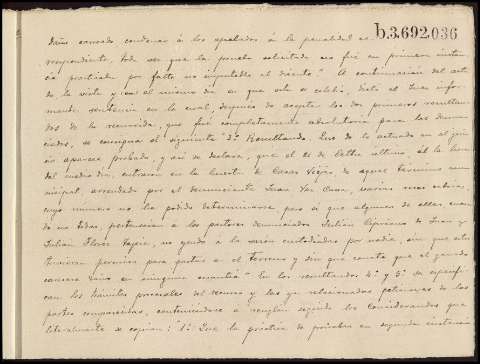 b.3.692.036
daño causado, condenar á los apelados á la penalidad co-
rrespondiente, toda vez que la prueba solicitada no fué en primera instan-
cia practicada por falta no imputable al dicente." A continuación del acta
de la vista y en el mismo día en que esta se celebró, dictó el Juez infor-
mante sentencia en la cual, después de aceptar los dos primeros resultan-
dos de la recurrida, que fué completamente absolutoria para los denun-
ciados, se consigna el siguiente "3º Resultando: Que de lo actuado en el jui-
cio aparece probado, y así se declara, que el de Octubre último, á la hora
del medio día, entraron en la Cuesta de Casas Viejas de aquel término mu-
nicipal, arrendado por el denunciante Juan Varias reses cabras,
cuyo número no ha podido determinarse, pero sí que algunas de ellas, cuan-
do no todas, pertenecían á los pastores denunciados Julián Cipriano de Juan y
Julián Flores Tapia, no yendo á la sazón custodiadas por nadie, sin que estos
tuvieran permiso para pastar en el terreno y sin que conste que el ganado
causara daño en ninguna cuantía." En los resultandos 4º y 5º se especifi-
can los trámites procesales del recurso y las ya relacionadas peticiones de las
partes comparecidas, conteniéndose á renglón seguido los Considerandos que
literalmente se copian: "1º Que la práctica de pruebas en segunda instancia